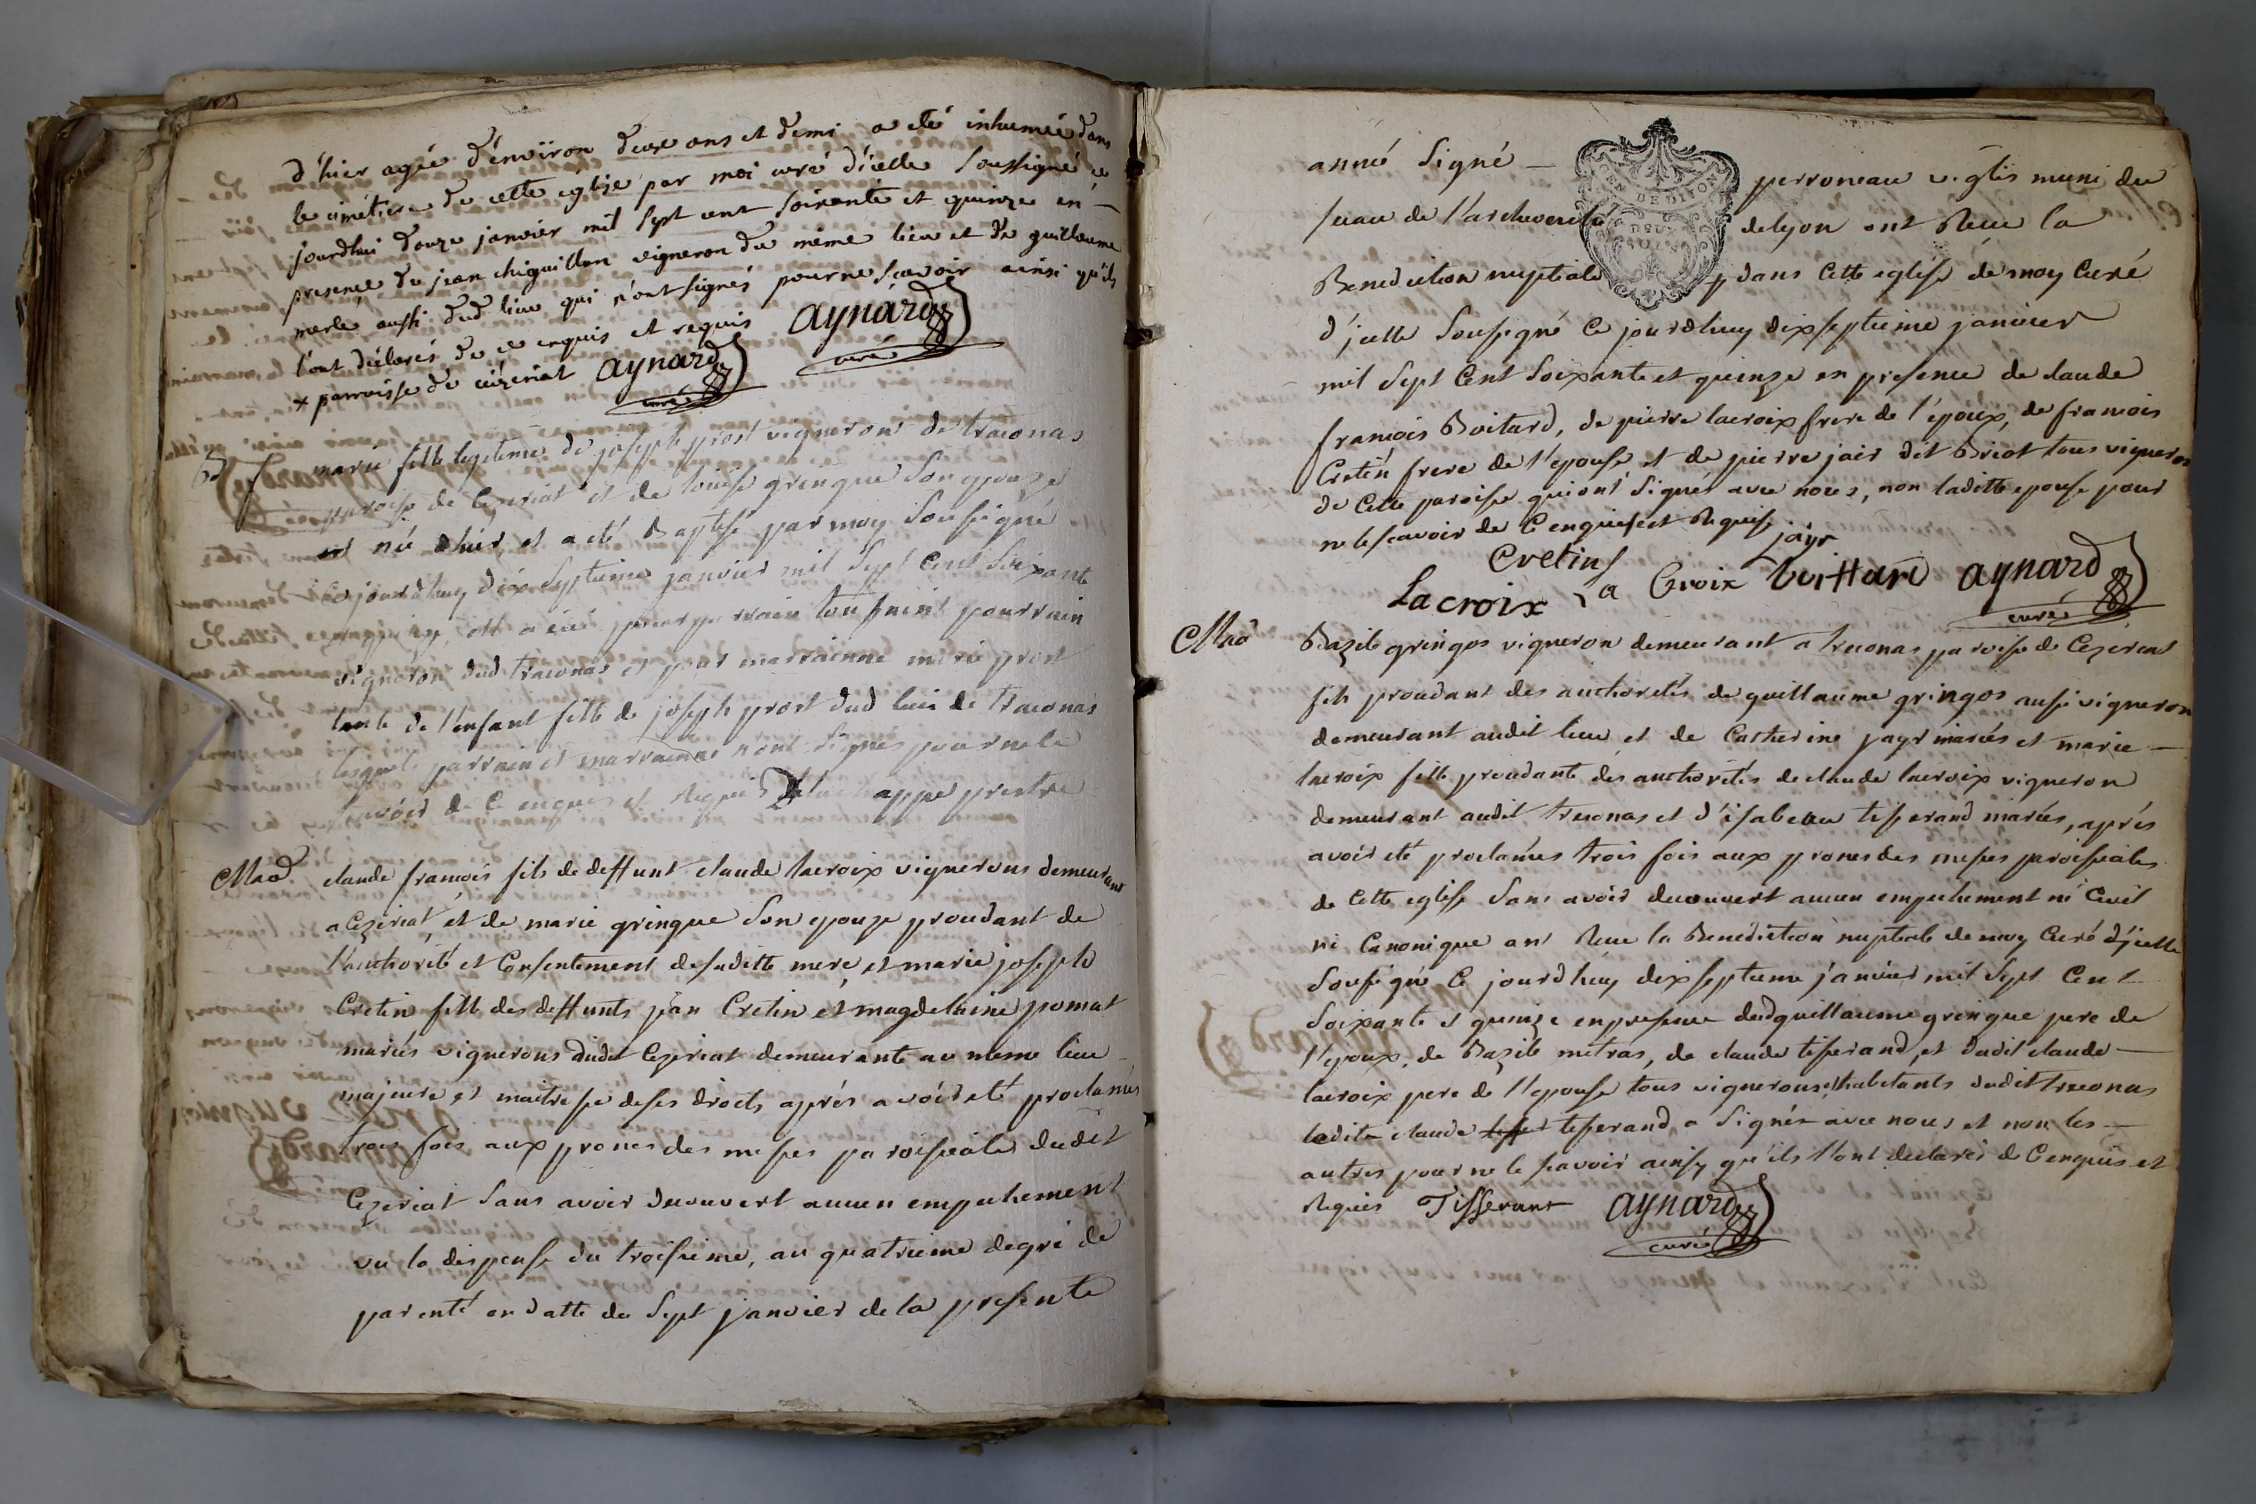 d'hier agée d'environ deux ans et demi a eté inhumée dans
le cimétiere de cette église par moi curé d'icelle soussigné ce
jourdhui douze janvier mil sept cent soixante et quinze en
presence de jean chiguillon vigneron du même lieu et de guillaume
merle aussi dud lieu qui n'ont signés pour ne scavoir ainsi qu'ils
l'ont déclarés de ce enquis et requis aynard
curé
x parroisse de cézeriat aynard
curé
Bd marie fille legitime de joseph prost vigneron de traconas
paroisse de Cezeriat et de louise gringue son epouze
est né d'hier et a eté Baptisé par moy Soussigné
ce jourd'huy dix septieme janvier mil sept Cent Soixante
et quinze, et a eü pour parrain toussaint pourrain
vigneron dud traconas et pour marrainne marie prost
tante de l'enfant fille de joseph prost dud lieu de traconas
lesquels parrain et marrainne n'ont signés pour ne le
scavoir de ce enquis et Requis prestre
Mad. claude françois fils de deffunt claude lacroix vignerons demeurant
a Cezeriat, et de marie gringue son epouze proudant de
l'authorité et Consentement de sa ditte mere, et marie josephe
Cretin fille des deffunts jean Cretin et magdelaine pomat
mariés vignerons dudit Cezeriat demeurante au meme lieu
majeure et maitresse de ses droits, après avoir eté proclamés
trois fois aux prones des messes paroissiales dudit
Cezeriat sans avoir decouvert aucun empechement
vu la dispense du troisieme, au quatrieme degré de
parenté en datte du sept janvier de la presente
année signé — perroneau v. glis muni du
seau de l'archeveché de lyon ont Recu la
Benediction nuptiale dans cette eglise de moy Curé
d'jcelle Soussigné ce jourdhuy dixseptieme janvier
mil sept Cent soixante et quinze en presence de claude
françois Boitard, de pierre lacroix frere de l'epoux, de francois
Cretin frere de l'epouse et de pierre jair dit Briot tous vignerons
de Cette paroisse qui ont signés avec nous, non laditte epouse pour
ne le scavoir de Ce enquise et Requise
Cretin jayr
Lacroix la Croix boittard aynard
curé
Mad Bazile gringos vigneron demeurant a traconas paroisse de Cezeriat
fils proudant des authorités de guillaume gringos aussi vigneron
demeurant audit lieu et de Catherine jayr mariés et marie —
lacroix fille proudante des authorités de claude lacroix vigneron
demeurant audit traconas et d'isabeau tisserand mariés, aprés
avoir eté proclamés trois fois aux prones des messes paroissiales
de Cette eglise sans avoir decouvert aucun empechement ni Civil
ni Canonique ont Recu la Benediction nuptiale de moy Curé d'jcelle
soussigné Ce jourdhuy dixseptieme janvier mil sept Cent
soixante et quinze en presence dud guillaume gringue pere de
l'epoux, de Bazile metras, de claude tisserand, et dudit claude —
lacroix pere de l'epouse tous vignerons et habitants dudit traconas
ledit claude tisserand a signés avec nous et non les —
autres pour ne le scavoir ainsy qu'ils l'ont declarés de Ce enquis et
Requis Tisserant aynard
curé
GEN DE DIJON
DEUX